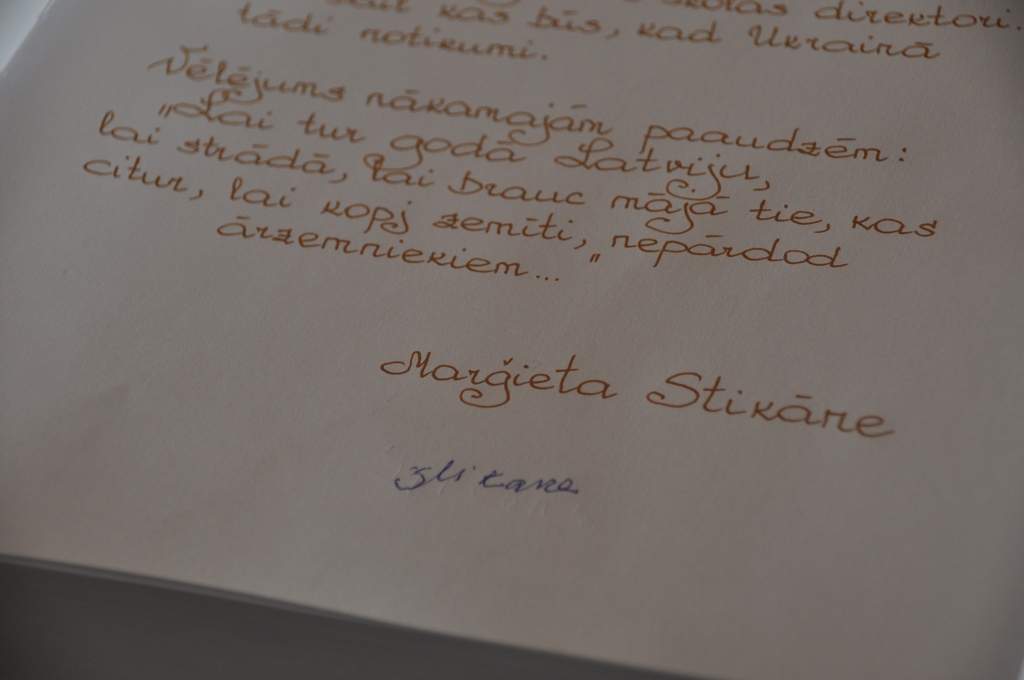 kas būs, kad Ukrainā direktori.
tādi notikumi.
Vēlējums nākamajām paaudzēm:
"Lai tur godā Latviju,
lai strādā, lai brauc mājā tie, kas
citur, lai kopj zemīti," nepārdod
ārzemniekiem...
Marģieta Stikāne
Stikane